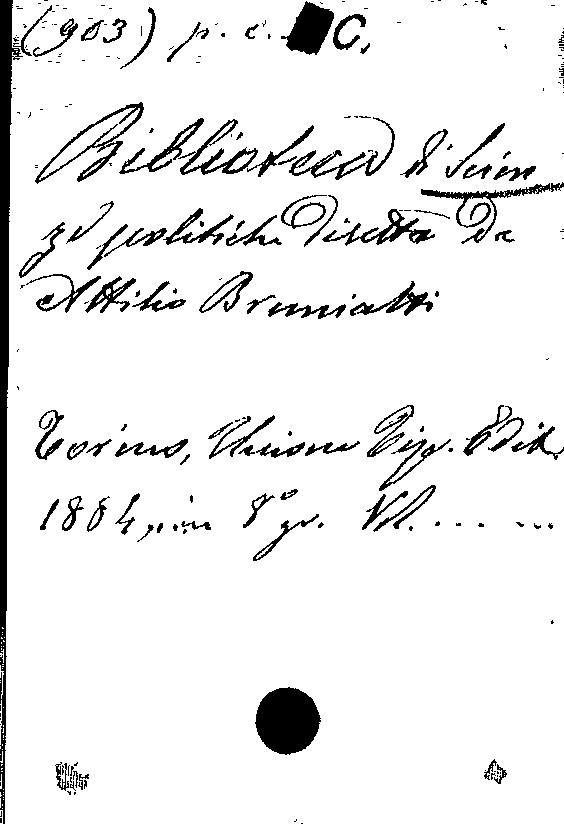 (903) p. c. C.
Biblioteca di Scien
ze politiche diretta da
Attilio Bruniatti
Torino, Unione Tip. Edit.
1884, in 8° gr. Vol. .... ...